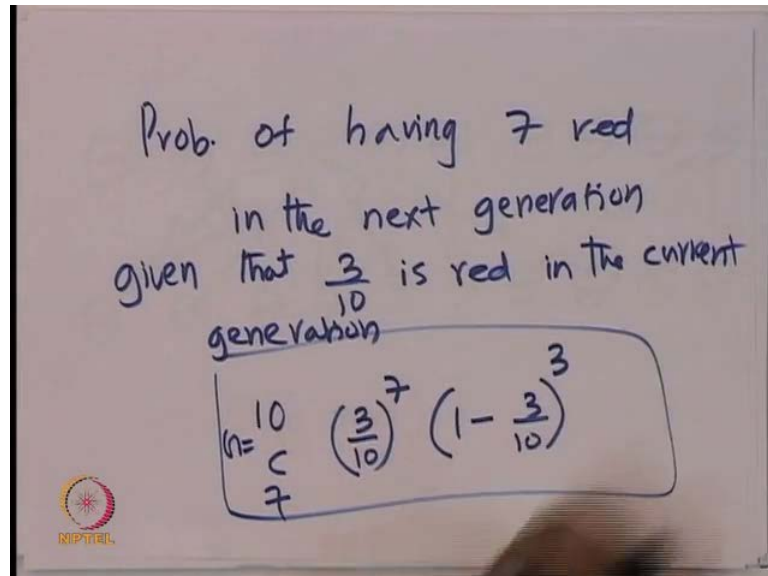 Prob. of having 7 red
in the next generation
given that 3/10 is red in the current
generation
n= 10 C 7 (3/10)^7 (1 - 3/10)^3
NPTEL